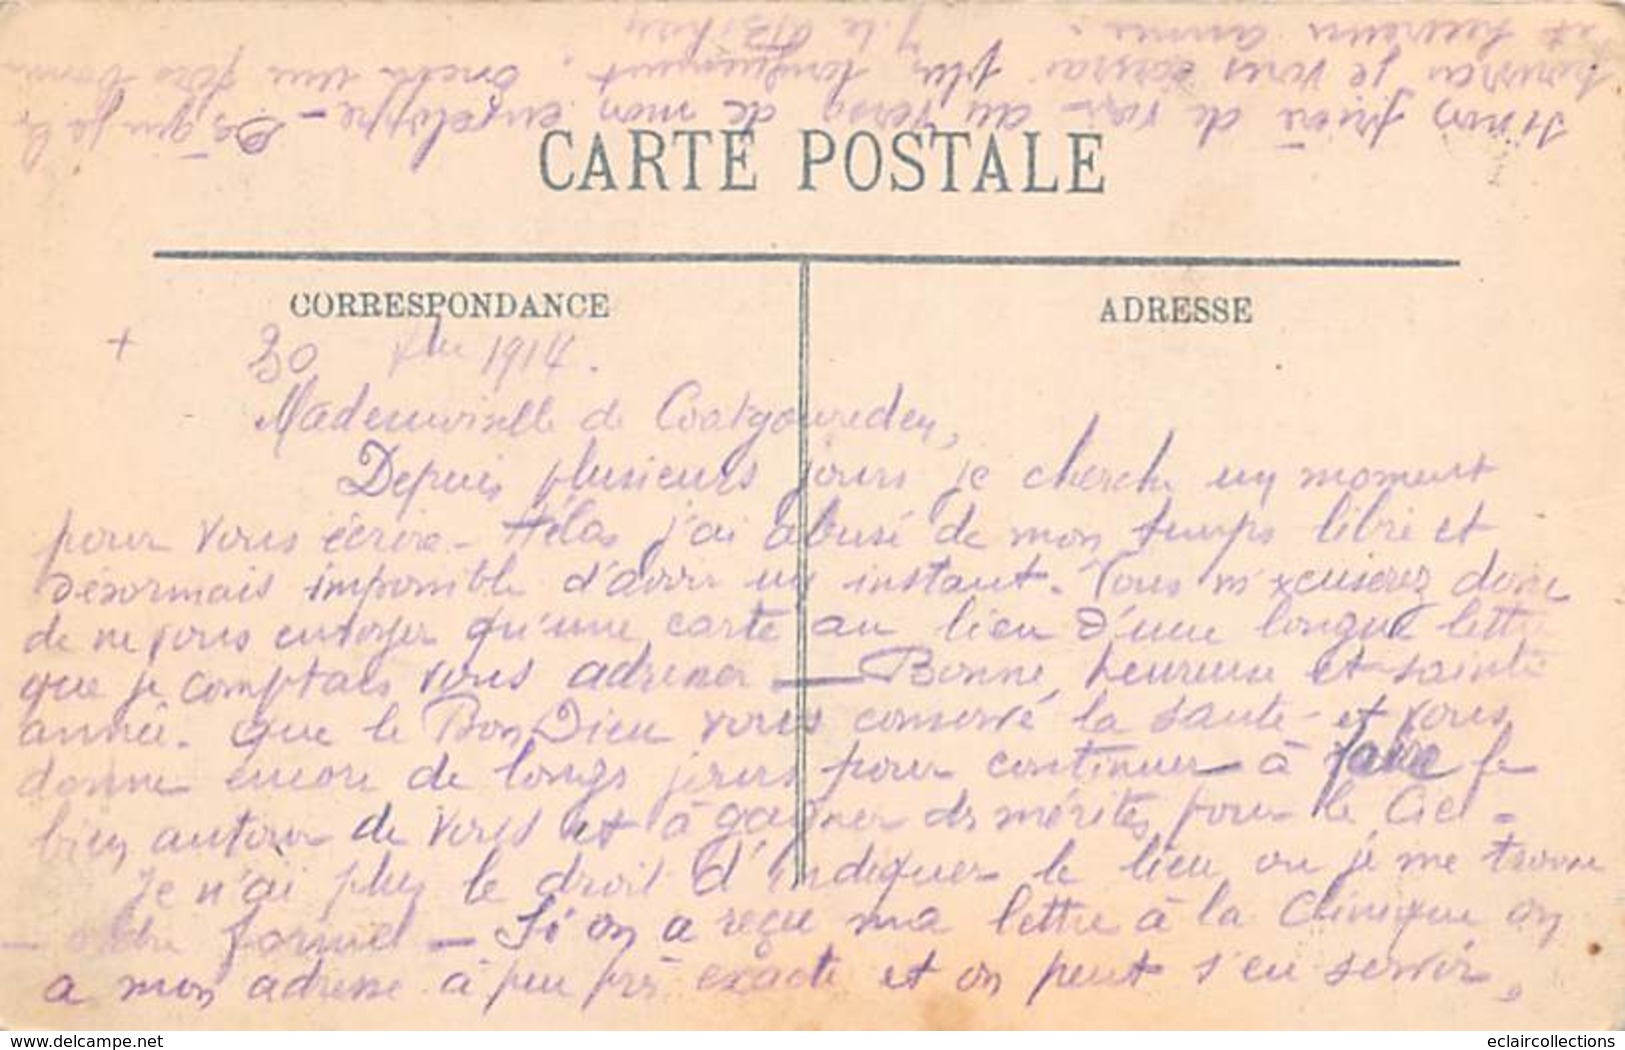 CARTE POSTALE
CORRESPONDANCE
ADRESSE
+
30 Xbre 1914.
Mademoiselle de Coatgoureden,
Depuis plusieurs jours je cherche un moment
pour vous écrire - Hélas j'ai abusé de mon temps libre et
désormais impossible d'avoir un instant. Vous m'excuserez donc
de ne vous envoyer qu'une carte au lieu d'une longue lettre
que je comptais vous adresser — Bonne, heureuse et sainte
année. Que le Bon Dieu vous conserve la santé - et vous
donne encore de longs jours pour continuer à faire le
bien autour de vous et à gagner des mérites pour le Ciel -
Je n'ai plus le droit d'indiquer le lieu ou je me trouve
- ordre formel - Si on a reçu ma lettre à la Clinique on
a mon adresse à peu près exacte et on peut s'en servir,
sinon prière de voir au verso de mon enveloppe - Dès que je le
pourrai je vous écrirai plus longuement. Encore une fois bonne
et heureuse année.
Y. le
www.delcampe.net
eclaircollections